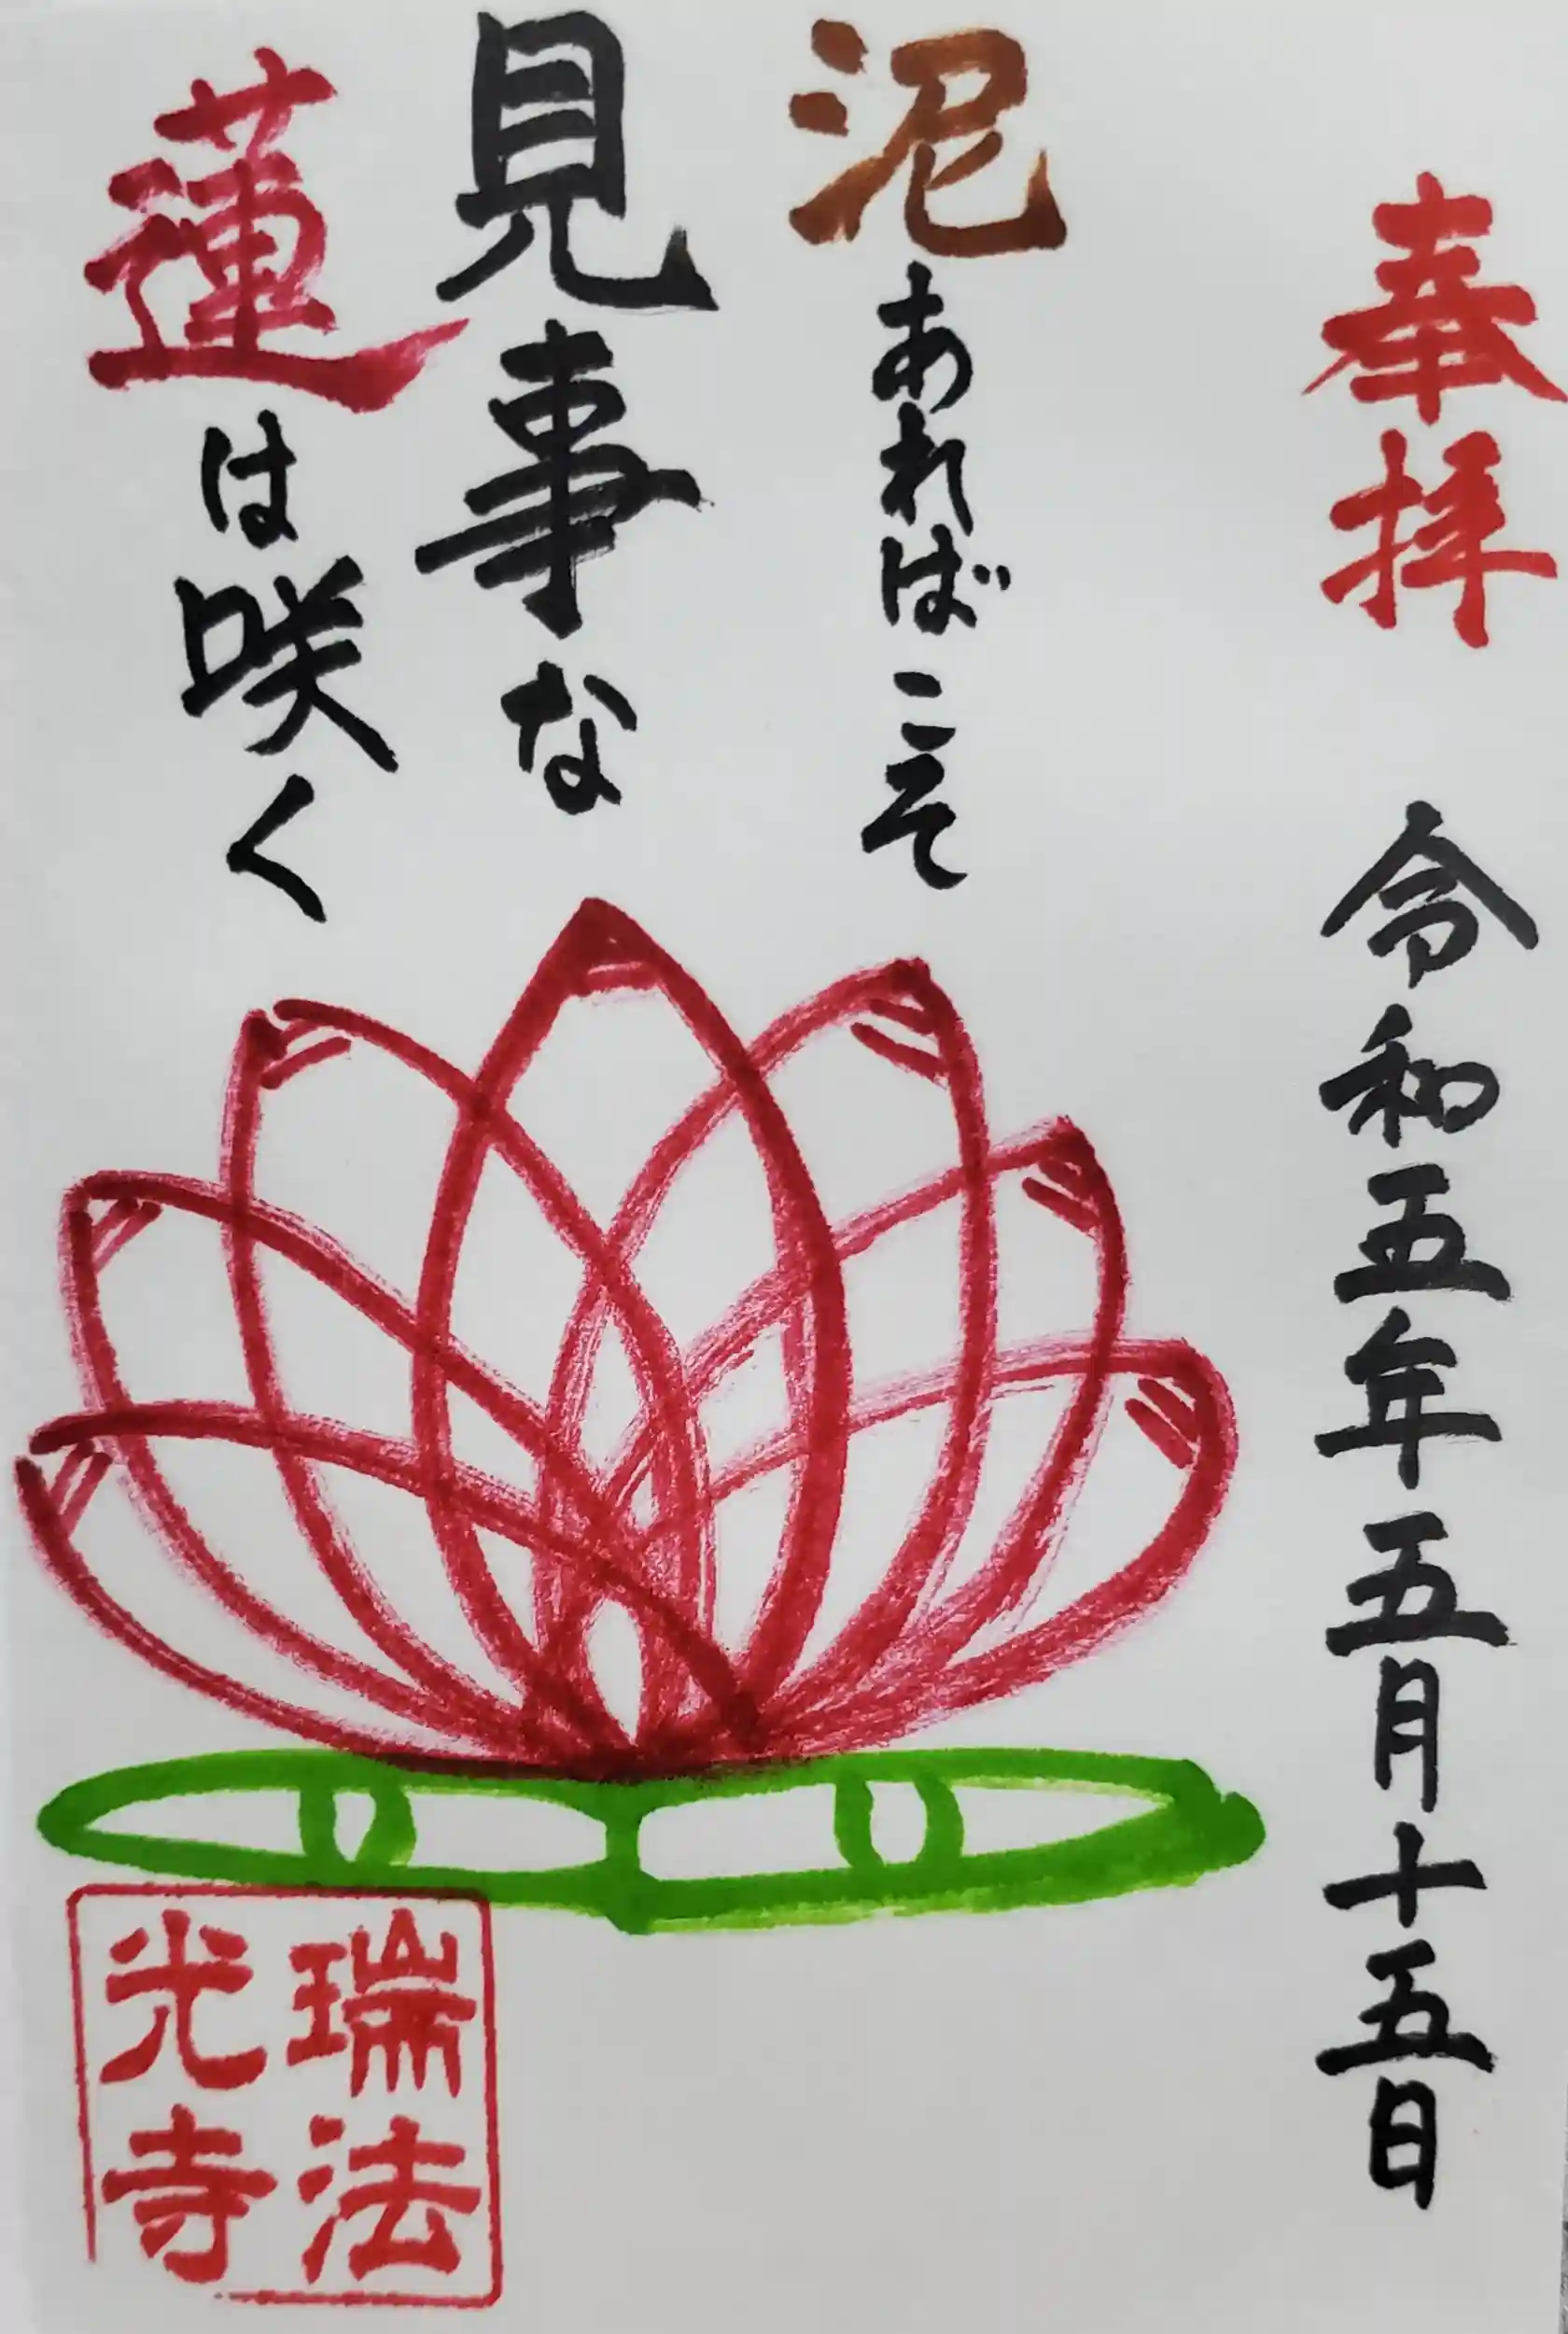 奉拝 令和五年五月十五日
泥あればこそ
見事な
蓮は咲く
瑞法
光寺